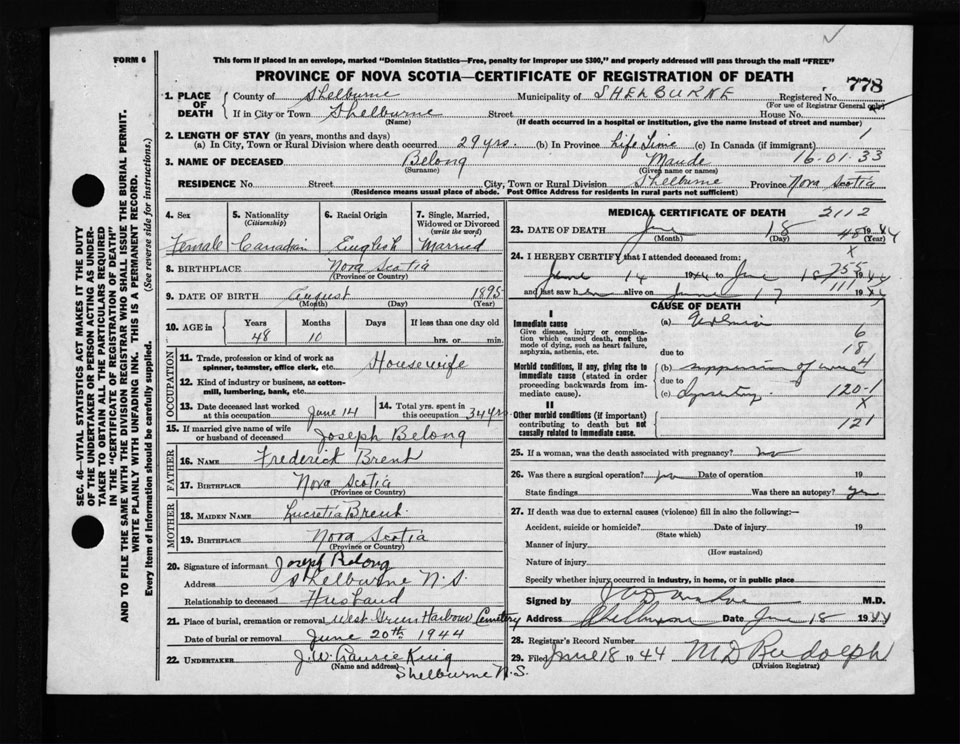 FORM 6
This form if placed in an envelope, marked "Dominion Statistics—Free, penalty for improper use $300," and properly addressed will pass through the mail "FREE"
PROVINCE OF NOVA SCOTIA—CERTIFICATE OF REGISTRATION OF DEATH
778
1. PLACE OF DEATH
County of Shelburne Municipality of SHELBURNE Registered No.
(For use of Registrar General only)
If in City or Town Shelburne Street House No.
(Name) (If death occurred in a hospital or institution, give the name instead of street and number)
2. LENGTH OF STAY (in years, months and days)
(a) In City, Town or Rural Division where death occurred 29 yrs. (b) In Province Life Time (c) In Canada (if immigrant) 1
3. NAME OF DECEASED Belong Maude 16.01.33
(Surname) (Given name or names)
RESIDENCE No. Street City, Town or Rural Division Shelburne Province Nova Scotia
(Residence means usual place of abode. Post Office Address for residents in rural parts not sufficient)
4. Sex
Female
5. Nationality (Citizenship)
Canadian
6. Racial Origin
English
7. Single, Married, Widowed or Divorced (write the word)
Married
8. BIRTHPLACE Nova Scotia
(Province or Country)
9. DATE OF BIRTH August 1895
(Month) (Day) (Year)
10. AGE in
Years Months Days If less than one day old
48 10 hrs. or min.
OCCUPATION
11. Trade, profession or kind of work as spinner, teamster, office clerk, etc. Housewife
12. Kind of industry or business, as cotton-mill, lumbering, bank, etc.
13. Date deceased last worked at this occupation June 14
14. Total yrs. spent in this occupation 34 yrs.
15. If married give name of wife or husband of deceased Joseph Belong
FATHER
16. NAME Frederick Brent
17. BIRTHPLACE Nova Scotia
(Province or Country)
MOTHER
18. MAIDEN NAME Lucretia Brent
19. BIRTHPLACE Nova Scotia
(Province or Country)
20. Signature of informant Joseph Belong
Address Shelburne N.S.
Relationship to deceased Husband
21. Place of burial, cremation or removal West Green Harbour Cemetery
Date of burial or removal June 20th 1944
22. UNDERTAKER J.W. Laurie King
(Name and address) Shelburne N.S.
MEDICAL CERTIFICATE OF DEATH 2112
23. DATE OF DEATH June 18 1944
(Month) (Day) (Year)
24. I HEREBY CERTIFY that I attended deceased from:
June 14 1944 to June 18 1944
and last saw her alive on June 17 1944
CAUSE OF DEATH
I
Immediate cause
Give disease, injury or complication which caused death, not the mode of dying, such as heart failure, asphyxia, asthenia, etc.
(a) Uremia
due to
Morbid conditions, if any, giving rise to immediate cause (stated in order proceeding backwards from immediate cause).
(b) suppression of urine
due to
(c) Dysentery 120-1
II
Other morbid conditions (if important) contributing to death but not causally related to immediate cause.
121
25. If a woman, was the death associated with pregnancy? no
26. Was there a surgical operation? no Date of operation 19
State findings Was there an autopsy?
27. If death was due to external causes (violence) fill in also the following:—
Accident, suicide or homicide? Date of injury 19
(State which)
Manner of injury
(How sustained)
Nature of injury
Specify whether injury occurred in industry, in home, or in public place
Signed by M.D.
Address Shelburne Date June 18 1944
28. Registrar's Record Number
29. Filed June 18 1944 M D Rudolph
(Division Registrar)
SEC. 46—VITAL STATISTICS ACT MAKES IT THE DUTY
OF THE UNDERTAKER OR PERSON ACTING AS UNDER-
TAKER TO OBTAIN ALL THE PARTICULARS REQUIRED
IN THE "CERTIFICATE OF REGISTRATION OF DEATH"
AND TO FILE THE SAME WITH THE DIVISION REGISTRAR WHO SHALL ISSUE THE BURIAL PERMIT.
WRITE PLAINLY WITH UNFADING INK. THIS IS A PERMANENT RECORD.
Every item of information should be carefully supplied. (See reverse side for instructions.)